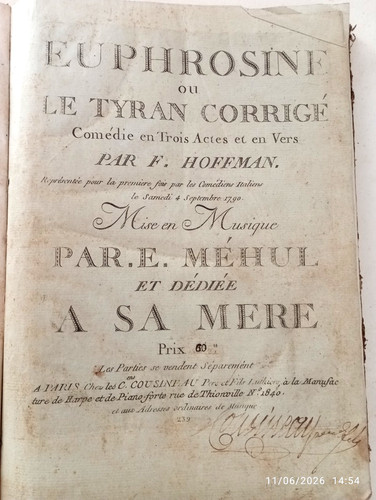 EUPHROSINE
OU
LE TYRAN CORRIGÉ
Comédie en Trois Actes et en Vers
PAR F. HOFFMAN.
Représentée pour la première fois par les Comédiens Italiens
le Samedi 4 Septembre 1790.
Mise en Musique
PAR. E. MÉHUL
ET DÉDIÉE
A SA MERE
Prix 60 ₶
Les Parties se vendent Séparement
A PARIS Chez les C.ens COUSINEAU Pere et Fils Luthiers, à la Manufac
ture de Harpe et de Piano-forte rue de Thionville N.º 1840.
et aux Adresses ordinaires de Musique
239
Cousineau pere et fils
11/06/2026 14:54